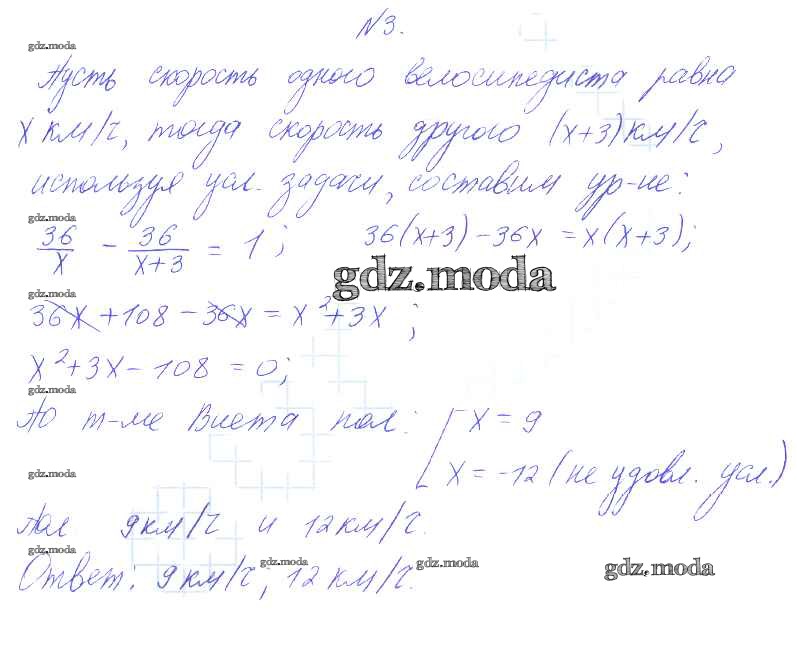 №3.
gdz.moda
Пусть скорость одного велосипедиста равна
x км/ч, тогда скорость другого (x+3) км/ч,
используя усл. задачи, составим ур-не:
gdz.moda
36/x - 36/(x+3) = 1; 36(x+3) - 36x = x(x+3);
gdz.moda
gdz.moda
36x + 108 - 36x = x² + 3x;
x² + 3x - 108 = 0;
gdz.moda
По т-ме Виета пол: [ x = 9
x = -12 (не удовл. усл.)
gdz.moda
Пол 9 км/ч и 12 км/ч.
gdz.moda
Ответ: 9 км/ч; 12 км/ч.
gdz.moda
gdz.moda
gdz.moda